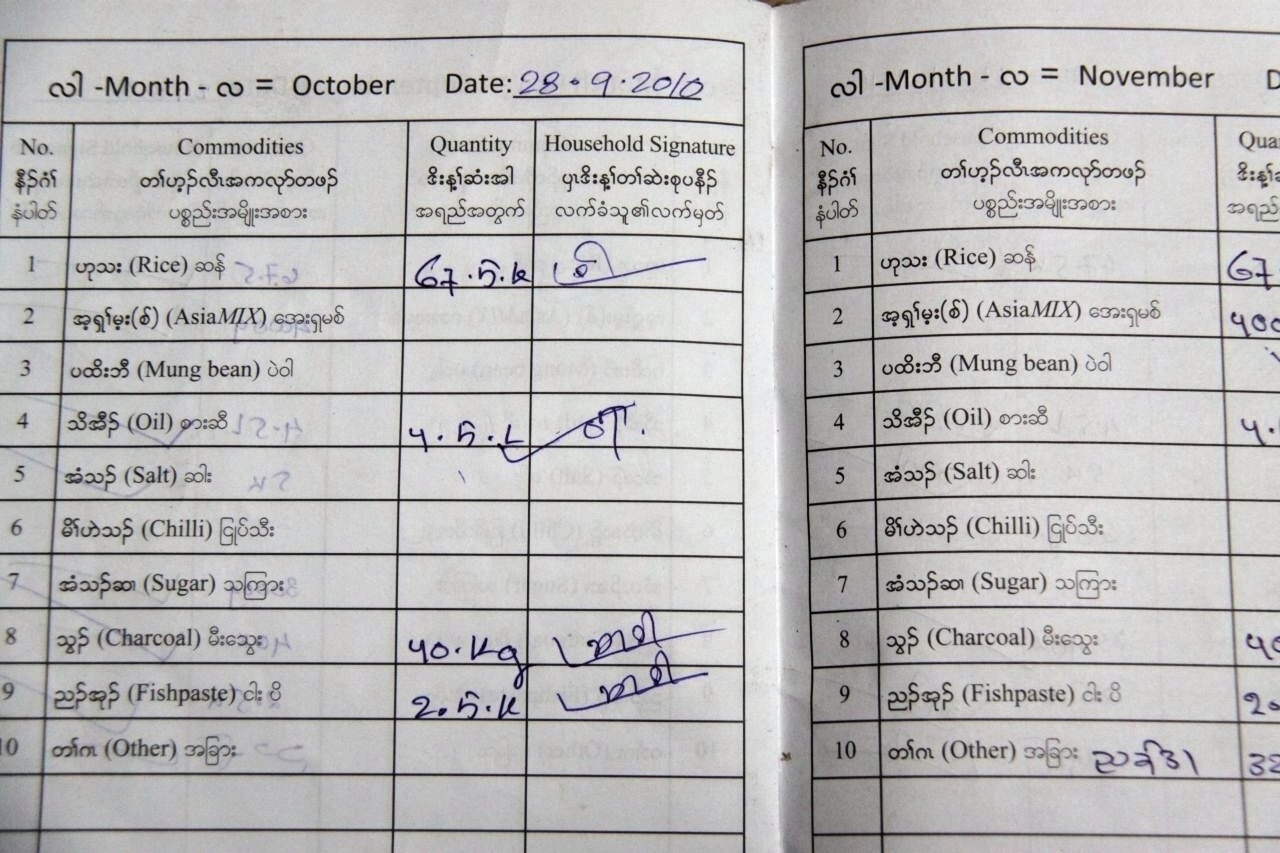 လါ -Month - လ = October Date: 28.9.2010
No. Commodities Quantity Household Signature
နီၣ်ဂံၢ် တၢ်ဟ့ၣ်လီၤအကလုာ်တဖၣ် ဒိးန့ၢ်ဆံးအါ ပှၤဒိးန့ၢ်တၢ်ဆဲးစုပနီၣ်
နံပါတ် ပစ္စည်းအမျိုးအစား အရည်အတွက် လက်ခံသူ၏လက်မှတ်
1 ဟုသး (Rice) ဆန် 67.5.k
2 အ့ရှၢ်မ့း(စ်) (AsiaMIX) အေးရှမစ်
3 ပထိးဘီ (Mung bean) ပဲဝါ
4 သိအီၣ် (Oil) စားဆီ 4.5.L
5 အံသၣ် (Salt) ဆါး
6 မိၢ်ဟဲသၣ် (Chilli) ငြုပ်သီး
7 အံသၣ်ဆၢ (Sugar) သကြား
8 သွၣ် (Charcoal) မီးသွေး 40.kg
9 ညၣ်အုၣ် (Fishpaste) ငါးပိ 2.5.k
10 တၢ်ဂၤ (Other) အခြား
လါ -Month - လ = November D
No. Commodities Qua
နီၣ်ဂံၢ် တၢ်ဟ့ၣ်လီၤအကလုာ်တဖၣ် ဒိးန့ၢ်ဆ
နံပါတ် ပစ္စည်းအမျိုးအစား အရည်
1 ဟုသး (Rice) ဆန် 67
2 အ့ရှၢ်မ့း(စ်) (AsiaMIX) အေးရှမစ် 400
3 ပထိးဘီ (Mung bean) ပဲဝါ
4 သိအီၣ် (Oil) စားဆီ 4.
5 အံသၣ် (Salt) ဆါး
6 မိၢ်ဟဲသၣ် (Chilli) ငြုပ်သီး
7 အံသၣ်ဆၢ (Sugar) သကြား
8 သွၣ် (Charcoal) မီးသွေး 40
9 ညၣ်အုၣ် (Fishpaste) ငါးပိ 2.
10 တၢ်ဂၤ (Other) အခြား